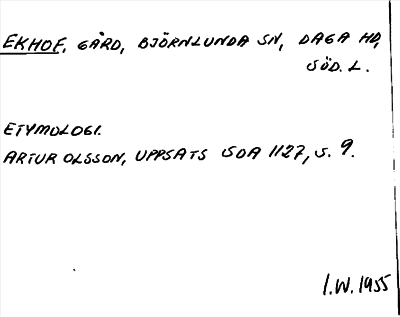 EKHOF, GÅRD, BJÖRNLUNDA SN, DAGA HD,
SÖD. L.
ETYMOLOGI.
ARTUR OLSSON, UPPSATS SOA 1127, S. 9.
I.W. 1955